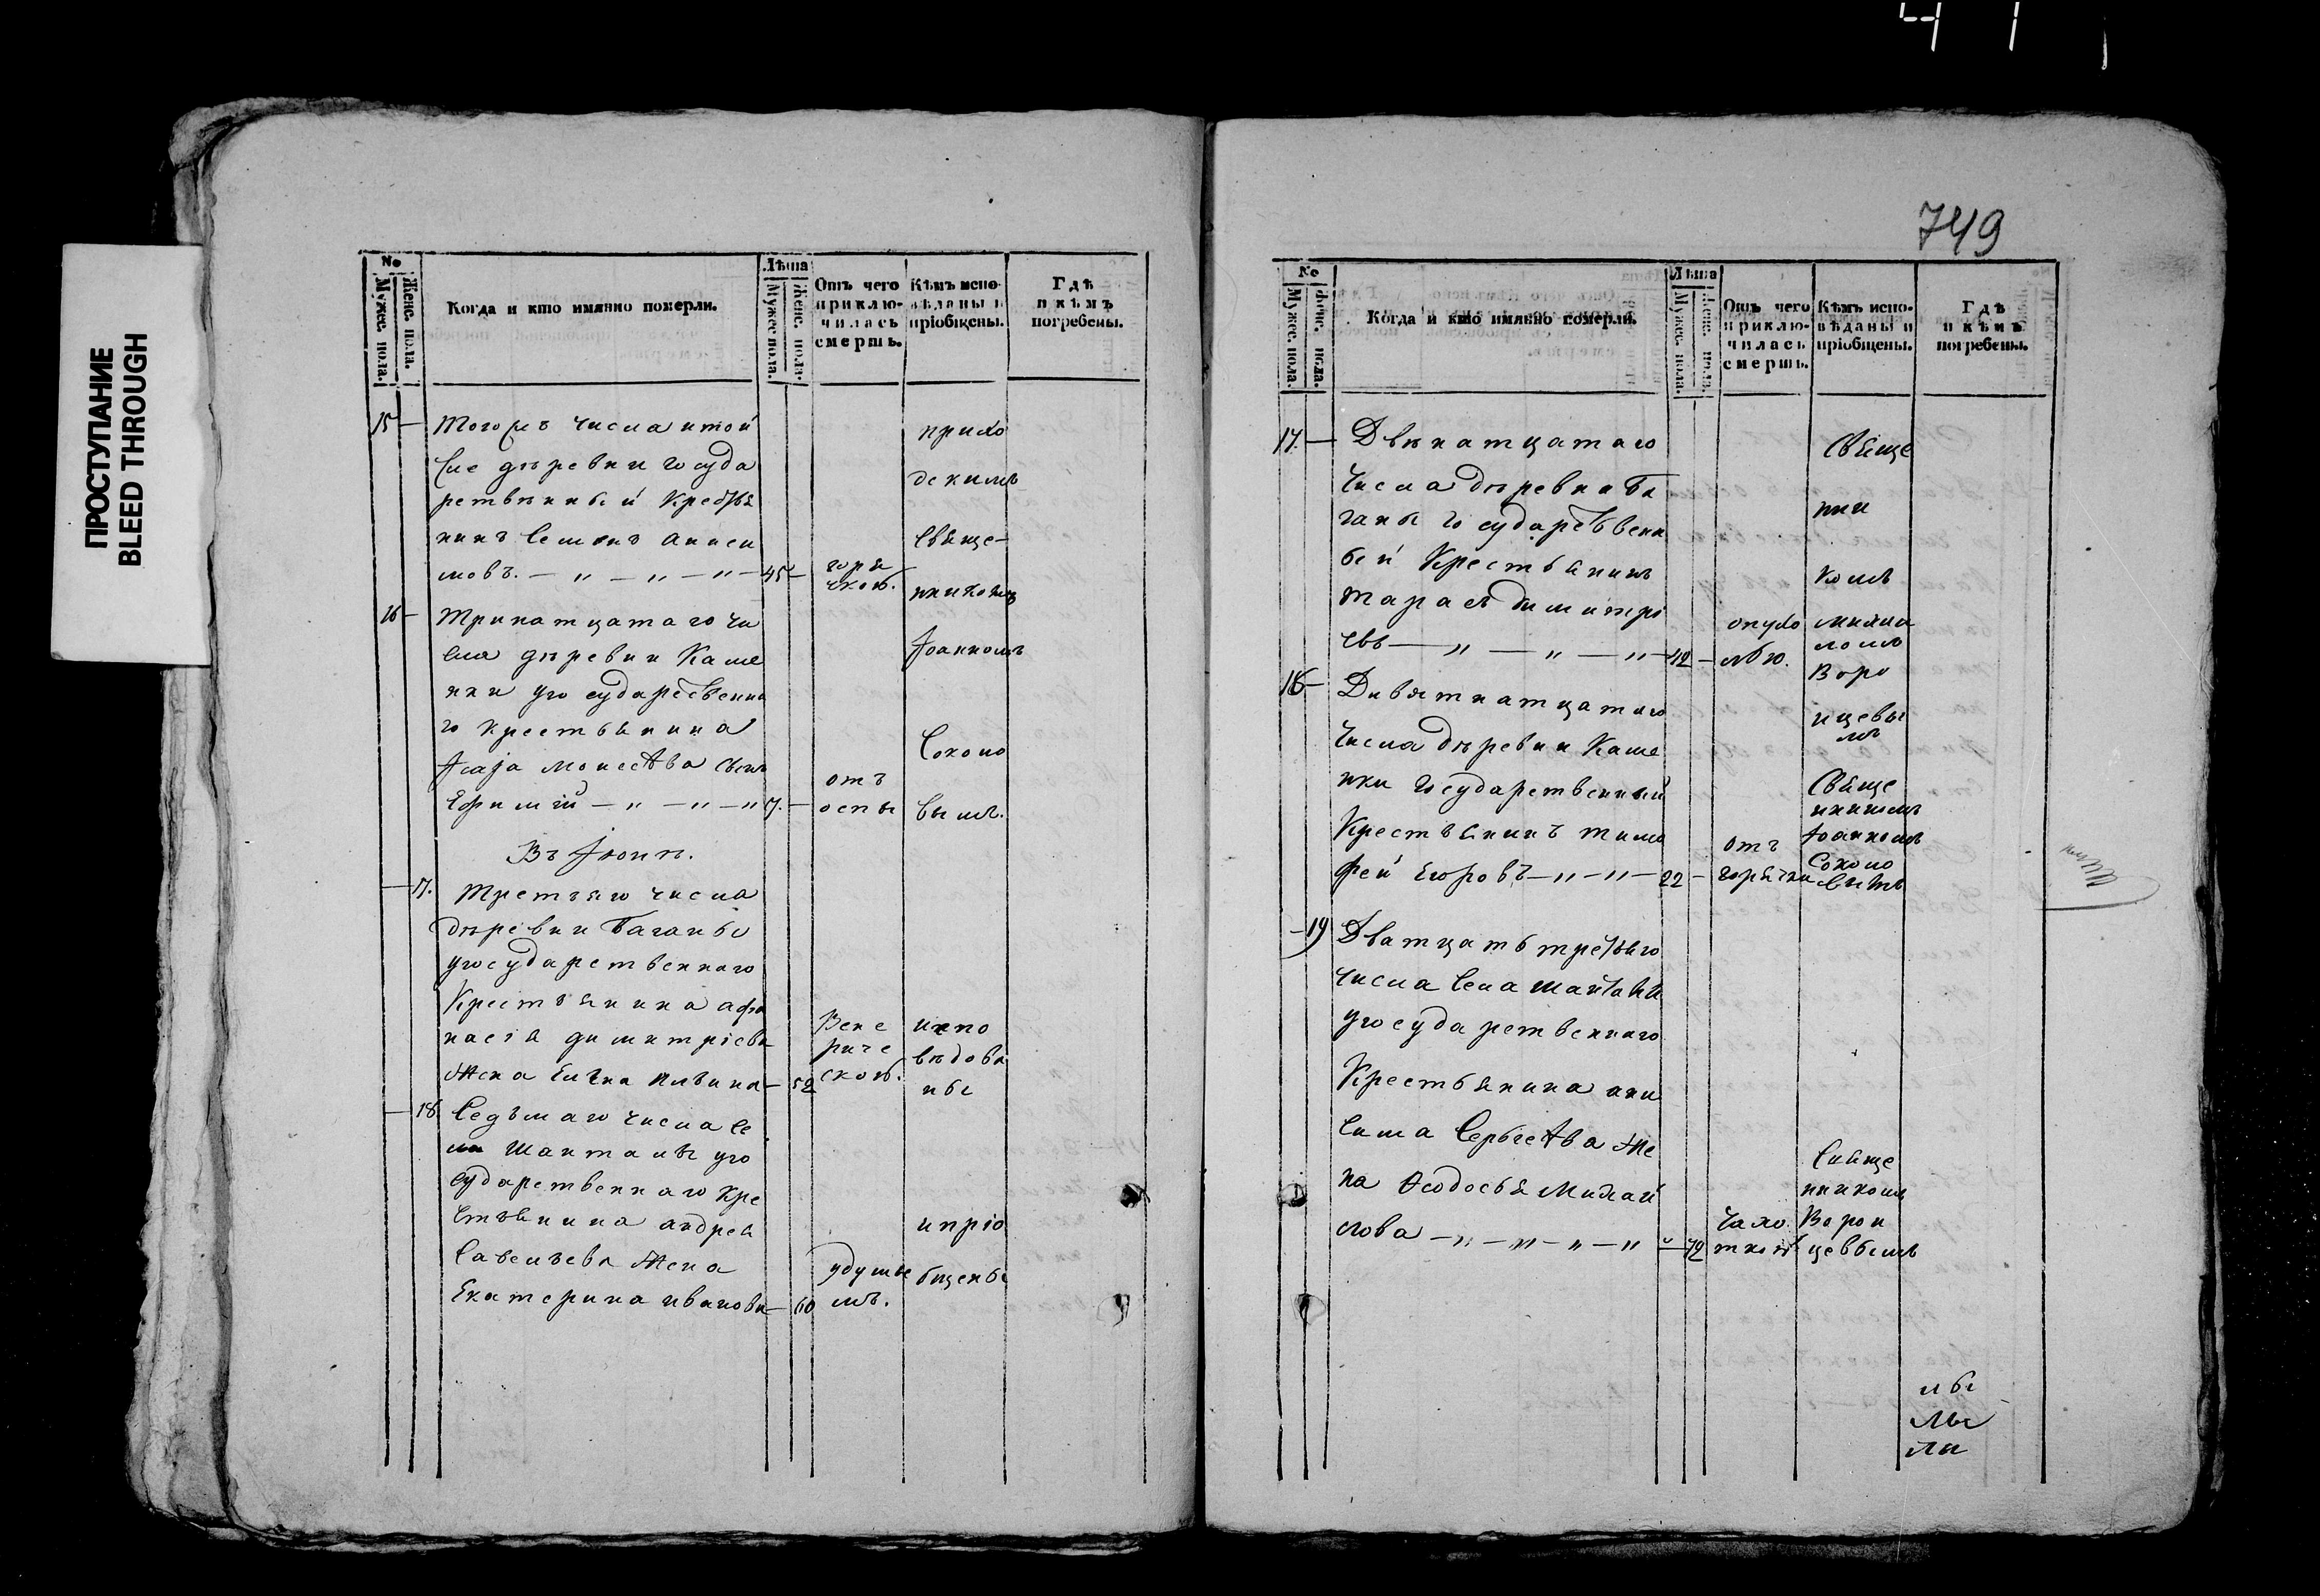 ПРОСТУПАНИЕ
BLEED THROUGH
749
№
Мужес. пола.
Женс. пола.
Когда и кто имянно померли.
Лѣта
Мужес. пола.
Женс. пола.
Отъ чего
приклю-
чилась
смерть.
Кѣмъ испо-
вѣданы и
пріобщены.
Гдѣ
и кѣмъ
погребены.
15 —
Тогожъ числа итой
же дѣревни госуда
рствѣнный Крестья
нинъ Семенъ аниси
мовъ. — „ — „ — „ — 45 —
горя
чкою.
прихо
дскимъ
свяще-
нникомъ
16 —
Тринатцатаго чи
сла дѣревни Каме
нки государственна
го крестьянина
Ефимій — „ — „ — „ 7. —
отъ
оспы
Іоанномъ
Соколо
вымъ.
Въ Іюнѣ.
— 17.
Третьяго числа
дѣревни Баганы
государственнаго
Крестьянина афа
насія димитріева
Жена Елена — 52
Вене
риче
скою.
испо
вѣдова
ны
— 18.
Седьмаго числа се
ла Шанталы го
сударственнаго кре
стьянина андрея
Савельева Жена
Екатерина иванова — 60
удушье
мъ.
и пріо
бщены
№
Мужес. пола.
Женс. пола.
Когда и кто имянно померли.
Лѣта
Мужес. пола.
Женс. пола.
Отъ чего
приклю-
чилась
смерть.
Кѣмъ испо-
вѣданы и
пріобщены.
Гдѣ
и кѣмъ
погребены.
17. —
Двѣнатцатаго
числа дѣревни Ба
ганы государственн
ый Крестьянинъ
тарасъ димитрі
евъ — „ — „ — „ — 42 —
опухо
лью.
Свяще
нни
комъ
михаи
ломъ
Воро
нцевы
мъ
18 —
Дивятнатцатаго
числа дѣревни Каме
нки государственный
Крестьянинъ тимо
фей Егоровъ — „ — „ — 22 —
отъ
горячки
Свяще
нникомъ
Іоанномъ
Соколо
вымъ
— 19
Дватцать третьяго
числа села
государственнаго
Крестьянина ани
сима Сергеева же
на Ѳеодосья Михай
лова — „ — „ — „ — „ — 72
чахо
ткою
Свяще
нникомъ
Ворон
цевымъ
лы
мы
ли